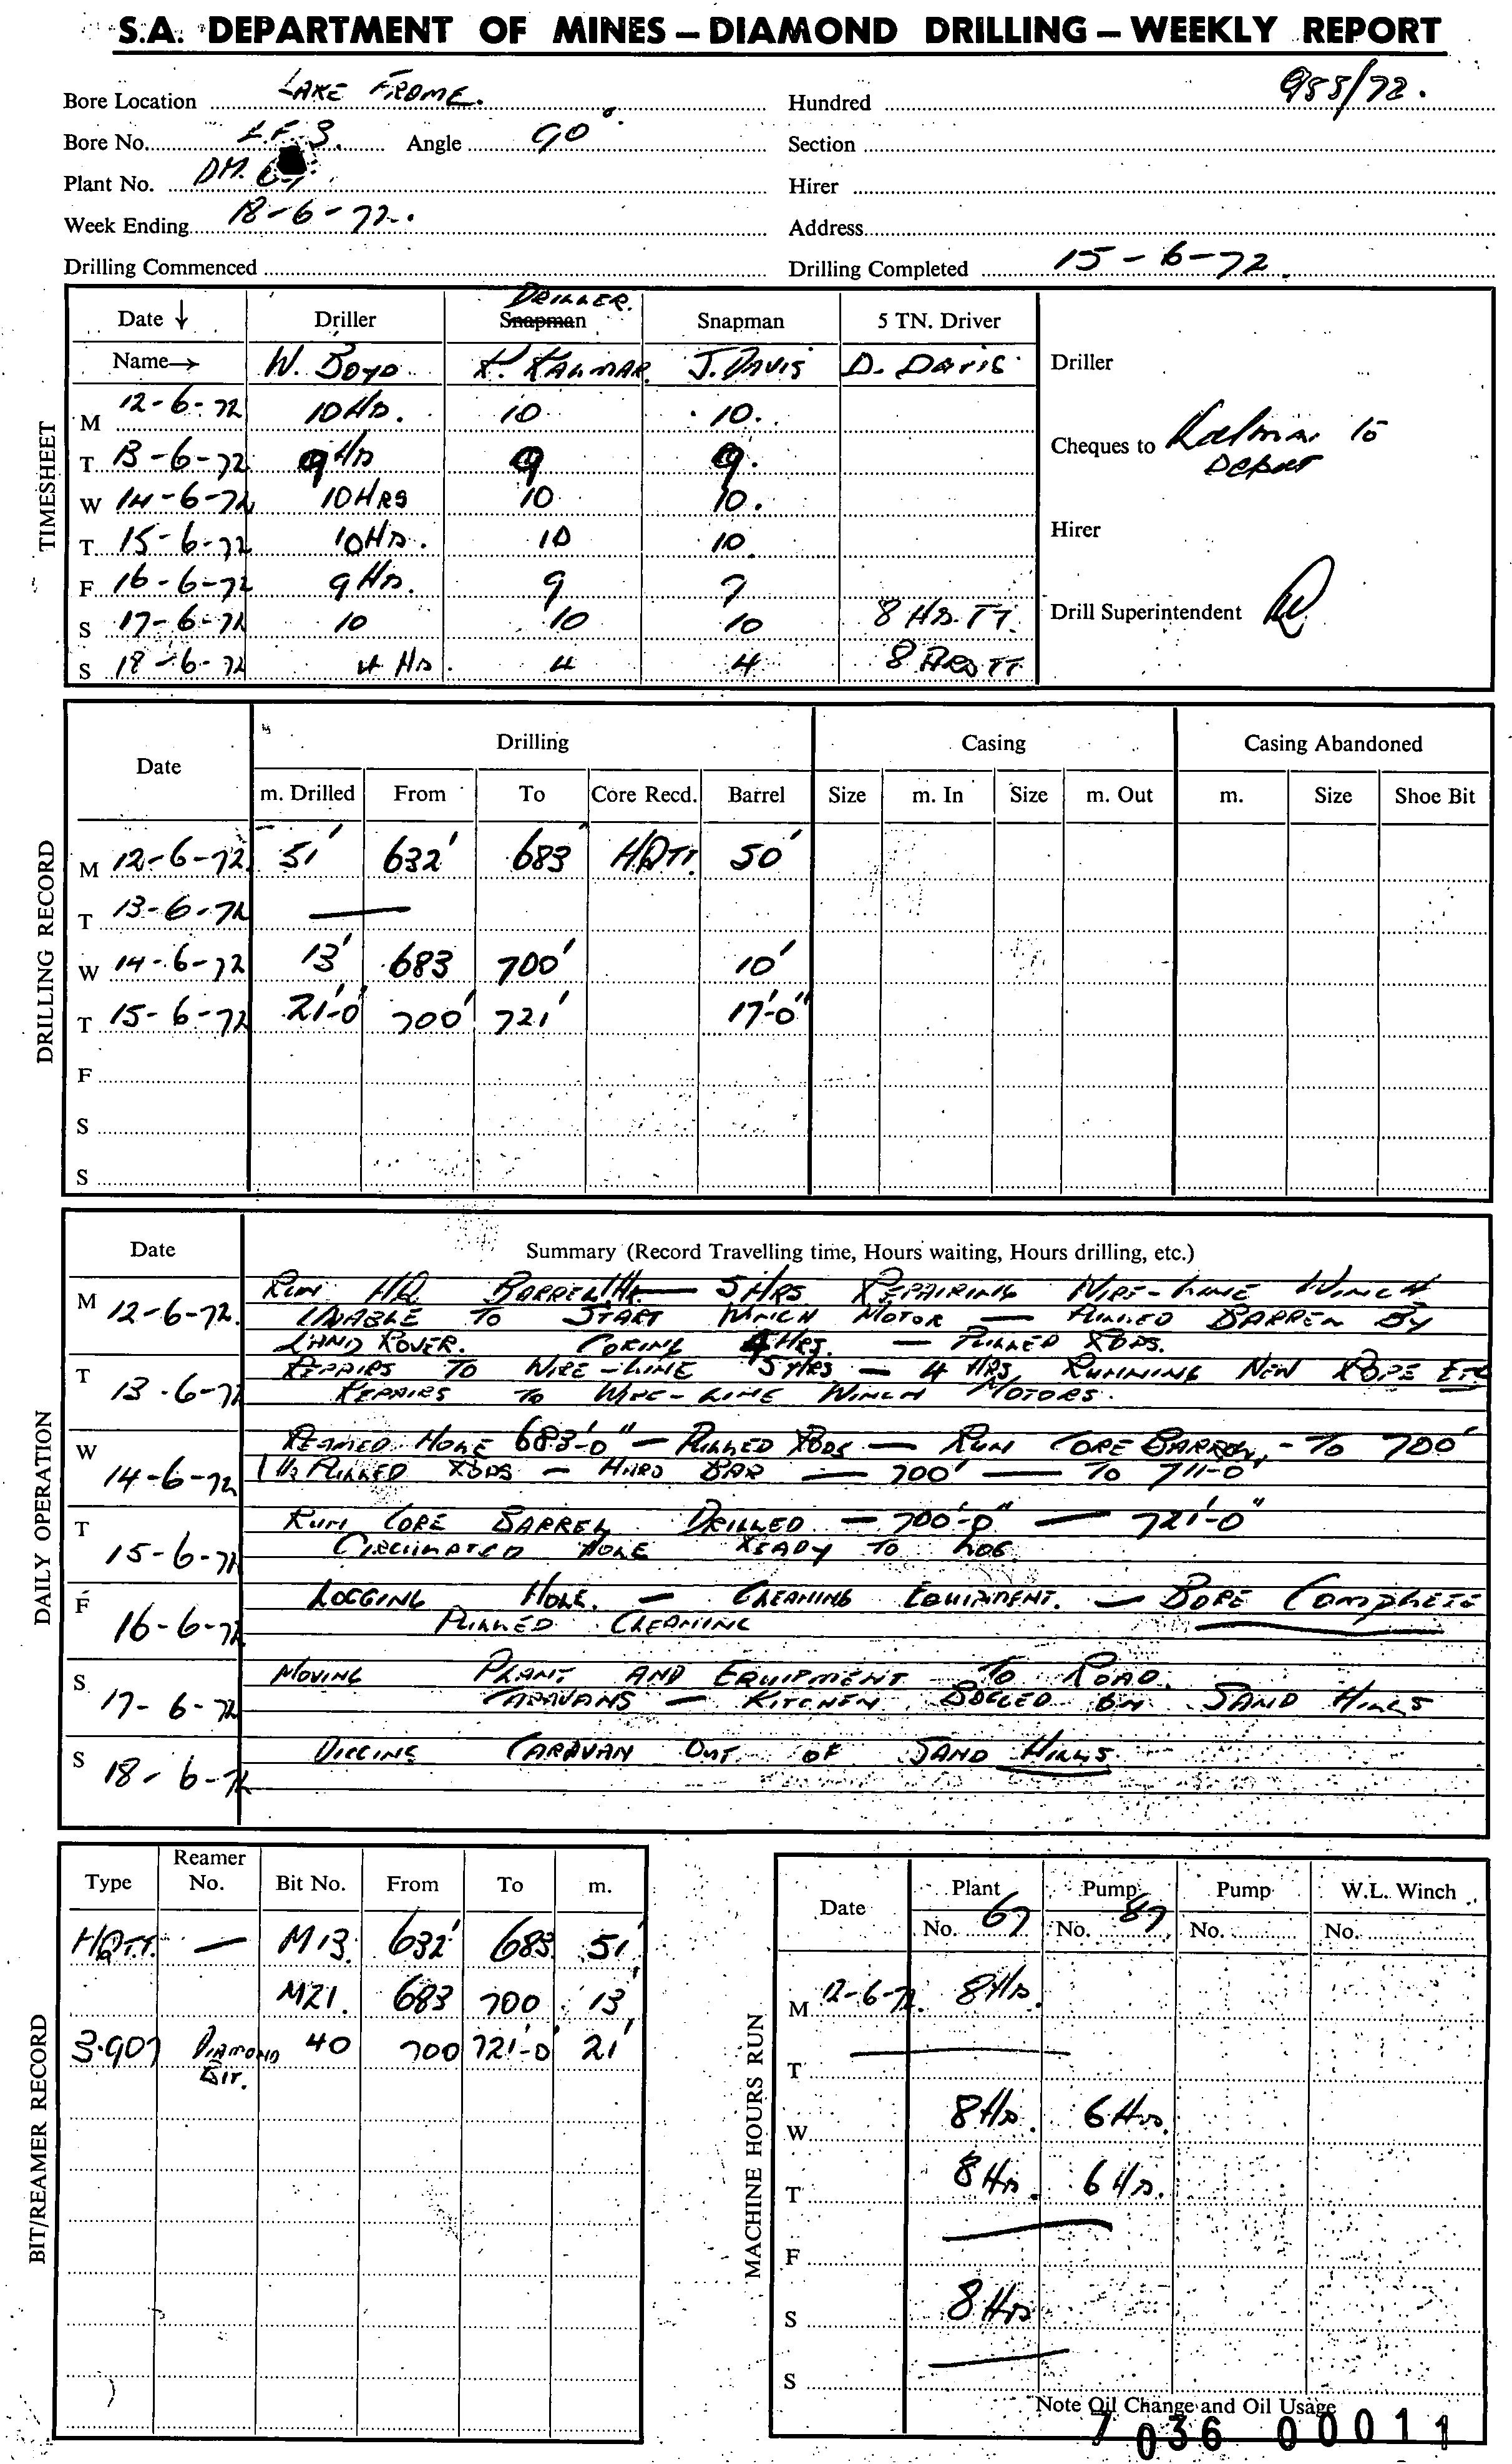 S.A. DEPARTMENT OF MINES – DIAMOND DRILLING – WEEKLY REPORT
Bore Location LAKE FROME. Hundred 985/72.
Bore No. L.F. 3. Angle 90° Section
Plant No. DM. 67. Hirer
Week Ending 18-6-72. Address
Drilling Commenced Drilling Completed 15-6-72.
TIMESHEET
DRILLER.
Date ↓ Driller Snapman Snapman 5 TN. Driver
Name→ W. BOYD K. KALMAR J. DAVIS D. DAVIS Driller
M 12-6-72 10 Hrs. 10 10.
T 13-6-72 9 Hrs 9 9. Cheques to Kalmar to Depot
W 14-6-72 10 HRS 10 10.
T 15-6-72 10 Hrs. 10 10. Hirer
F 16-6-72 9 Hrs. 9 9
S 17-6-72 10 10 10 8 HRS. TT. Drill Superintendent
S 18-6-72 4 Hrs. 4 4 8 HRS TT
DRILLING RECORD
Date Drilling Casing Casing Abandoned
m. Drilled From To Core Recd. Barrel Size m. In Size m. Out m. Size Shoe Bit
M 12-6-72 51' 632' 683' HQTT. 50'
T 13-6-72 —
W 14-6-72 13' 683 700' 10'
T 15-6-72 21'-0 700' 721' 17'-0"
F
S
S
DAILY OPERATION
Date Summary (Record Travelling time, Hours waiting, Hours drilling, etc.)
M 12-6-72. RUN HQ BARREL — 5 HRS REPAIRING WIRE-LINE WINCH
UNABLE TO START WINCH MOTOR — PULLED BARREL BY
LAND ROVER. CORING 4 HRS. — PULLED RODS.
T 13-6-72 REPAIRS TO WIRE-LINE 5 HRS — 4 HRS RUNNING NEW ROPE ETC
REPAIRS TO WIRE-LINE WINCH MOTORS.
W 14-6-72 REAMED HOLE 683'-0" — PULLED RODS — RUN CORE BARREL, - TO 700'
PULLED RODS — HARD BAR — 700' — TO 711-0
T 15-6-72 RUN CORE BARREL DRILLED — 700'-0" — 721'-0"
CIRCULATED HOLE READY TO LOG.
F 16-6-72 LOGGING HOLE. — CLEANING EQUIPMENT. — BORE COMPLETE
PULLED CLEANING
S 17-6-72 MOVING PLANT AND EQUIPMENT TO ROAD.
CARAVANS — KITCHEN BOGGED ON SAND HILLS
S 18-6-72 DIGGING CARAVAN OUT OF SAND HILLS.
BIT/REAMER RECORD
Type Reamer No. Bit No. From To m.
HQTT. — M13 632' 683 51'
M21. 683 700 13'
3.907 DIAMOND BIT. 40 700 721'-0 21'
MACHINE HOURS RUN
Date Plant Pump Pump W.L. Winch
No. 67 No. 87 No. No.
M 12-6-72. 8 Hrs.
T —
W 8 Hrs. 6 Hrs.
T 8 Hrs. 6 Hrs.
F —
S 8 Hrs
S —
Note Oil Change and Oil Usage
7 036 00011